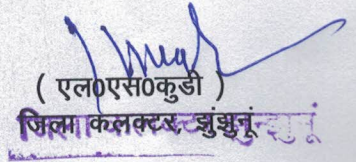 ( एल0एस0कुडी )
जिला कलक्टर, झुंझुनूं